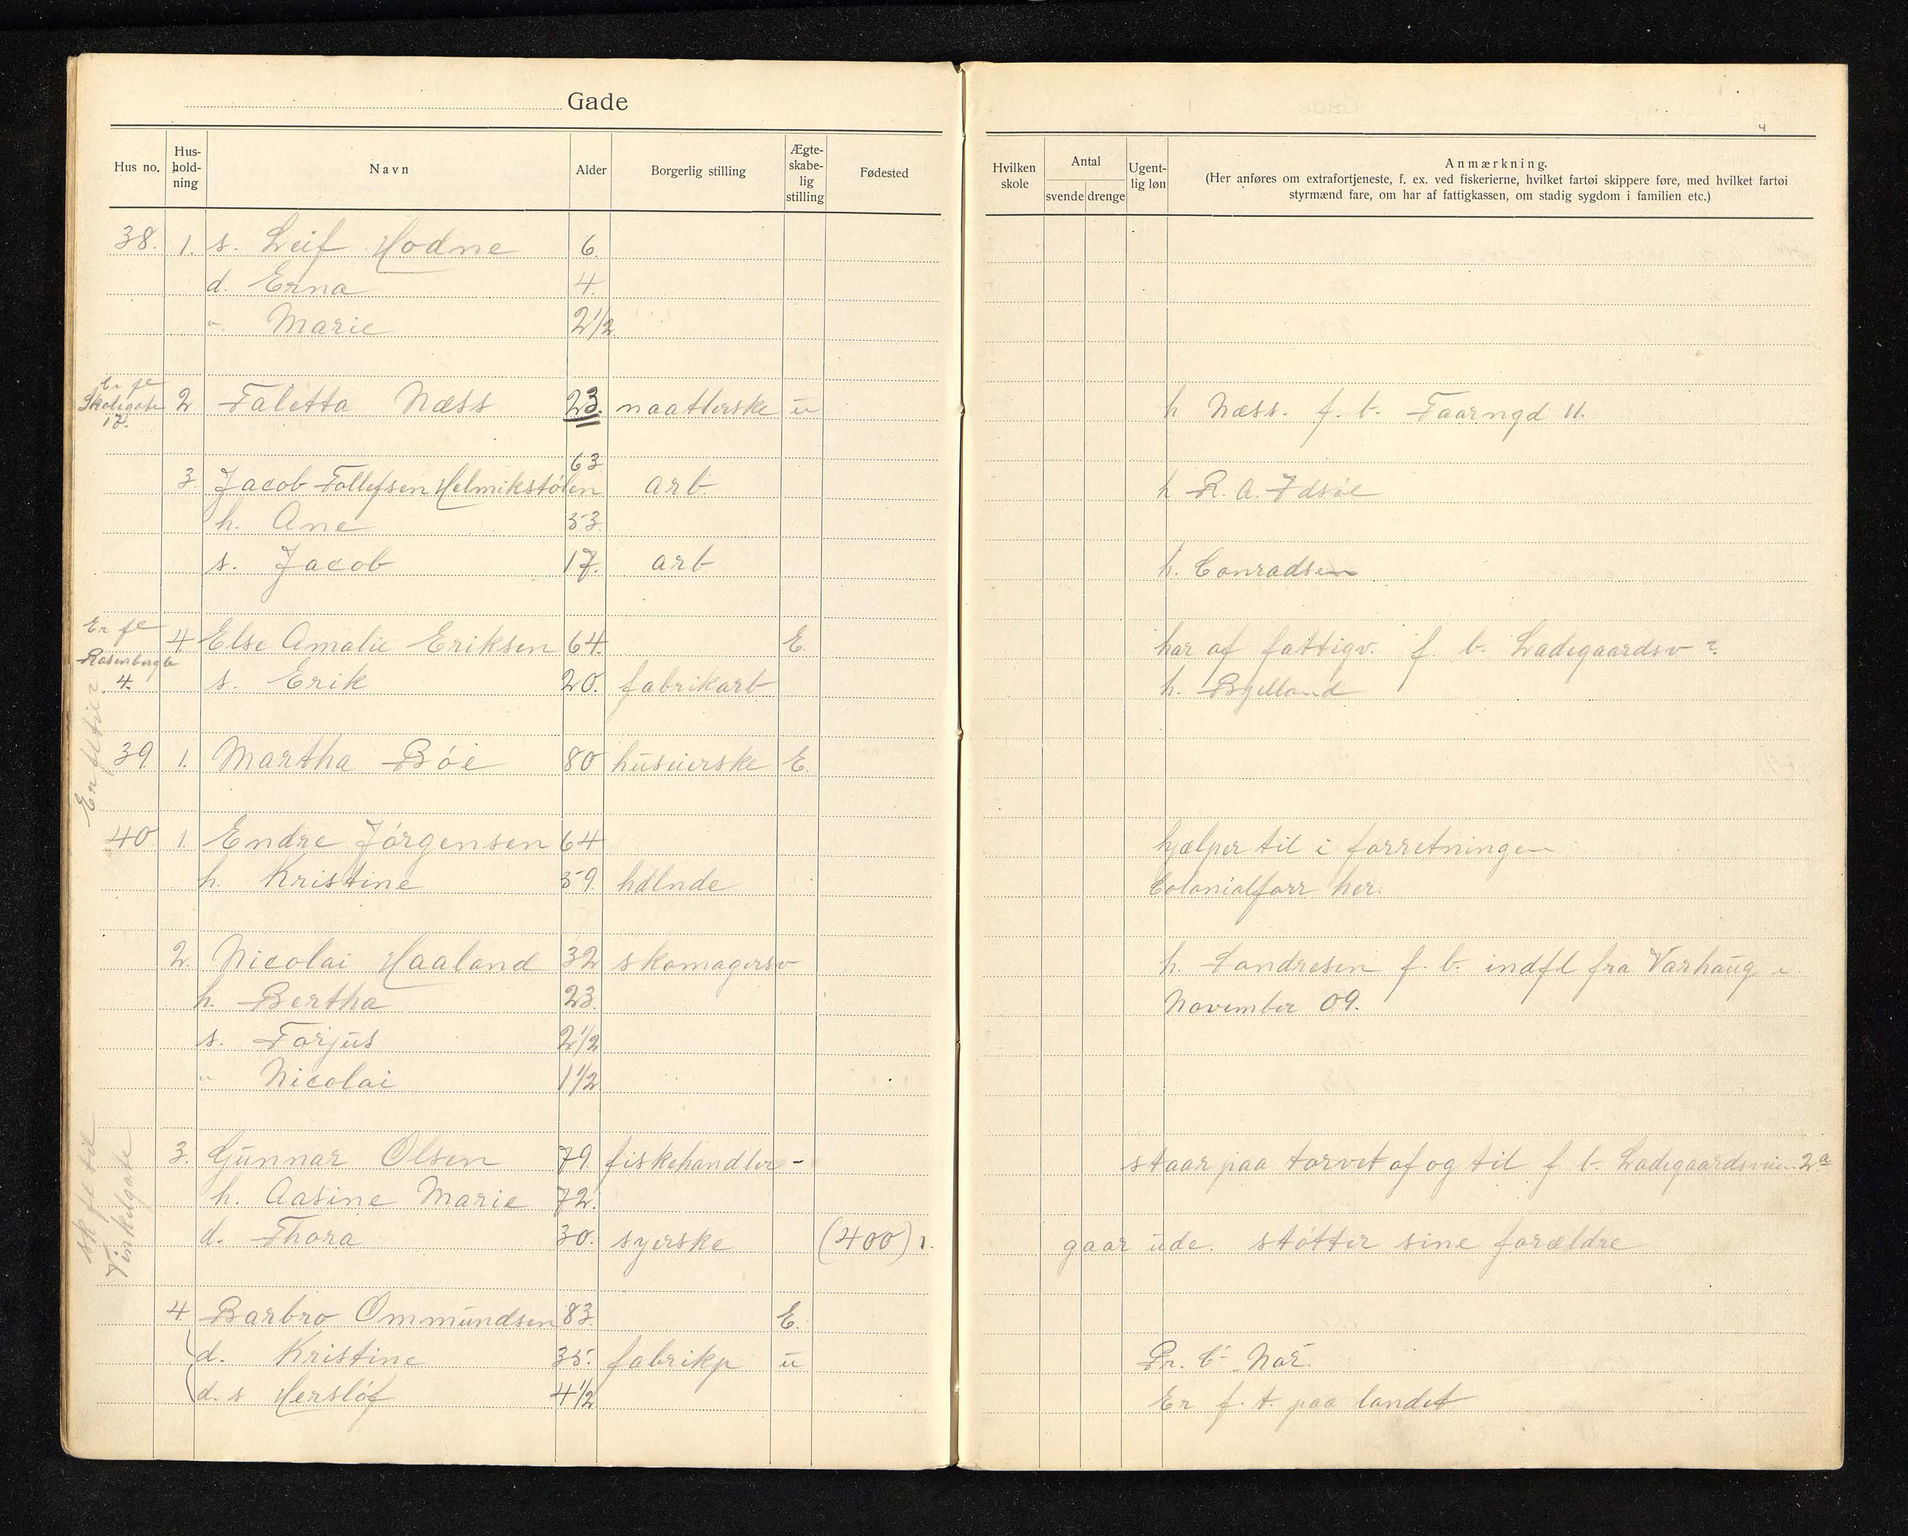 Gade
Hus no. Hus-hold-ning Navn Alder Borgerlig stilling Ægte-skabe-lig stilling Fødested
38. 1. s. Leif Hodne 6.
d. Erna 4.
" Marie 2 1/2
Er fl Skolegate 17. 2 Taletta Næss 23. naatlerske u
3. Jacob Tollefsen Helmikstølen 63 arb.
h. Ane 53.
s. Jacob 17. arb
Er fl Rosenbergte 4. 4 Else Amalie Eriksen 64. E.
s. Erik 20. fabrikarb
Er fl til
39 1. Martha Bøe 80 huseierske E.
40 1. Endre Jørgensen 64
h. Kristine 59. hdlnde
2. Nicolai Haaland 32 skomagersv
h. Bertha 23.
s. Torjus 2 1/2
" Nicolai 1 1/2
sk fl til Vinkelgate
3. Gunnar Olsen 79. fiskehandler -
h. Aasine Marie 72.
d. Thora 30. syerske (400) 1.
4. Barbro Ommundsen 83. E.
d. Kristine 35. fabrikp u
d. s Hersløf 4 1/2
4
Hvilken skole Antal svende drenge Ugent-lig løn Anmærkning.
(Her anføres om extrafortjeneste, f. ex. ved fiskerierne, hvilket fartøi skippere føre, med hvilket fartøi
styrmænd fare, om har af fattigkassen, om stadig sygdom i familien etc.)
h Næss. f. b. Taarngd 11.
h R. A. Idsøe
h. Conradsen
har af fattigv. f. b. Ladegaardsv ?
h. Bjelland
hjælper til i forretningen
Colonialforr her.
h. Tandresen f. b. indfl fra Varhaug i
November 09.
staar paa torvet af og til f b. Ladegaardsveien 2a
gaar ude. støtter sine forældre
Pr. C. Nor.
Er f. t. paa landet